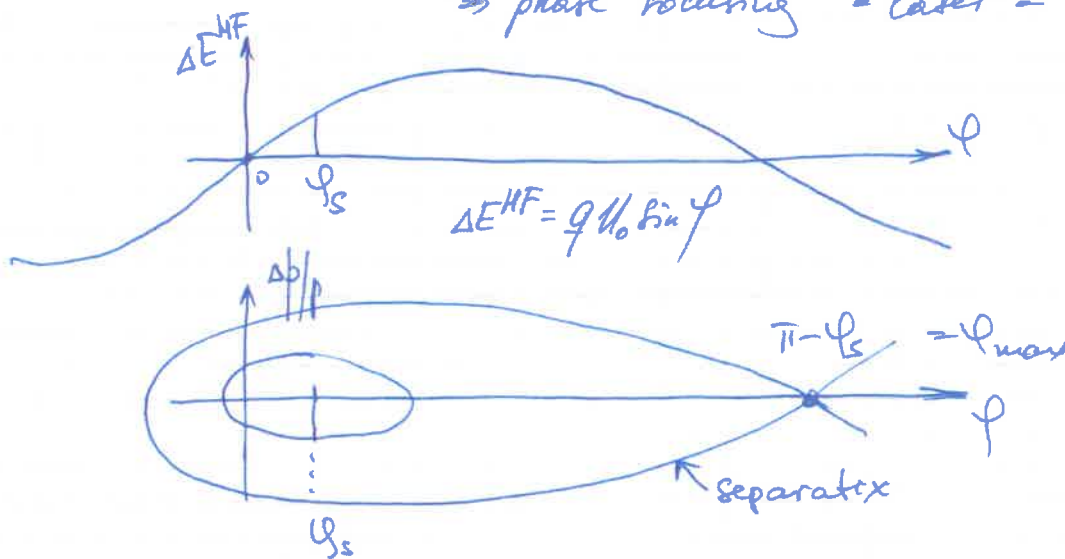 ⇒ phase focusing
ΔE^HF
φ
0
φ_s
ΔE^HF = q U₀ sin φ
Δp/p
π-φ_s = φ_max
φ
separatix
φ_s